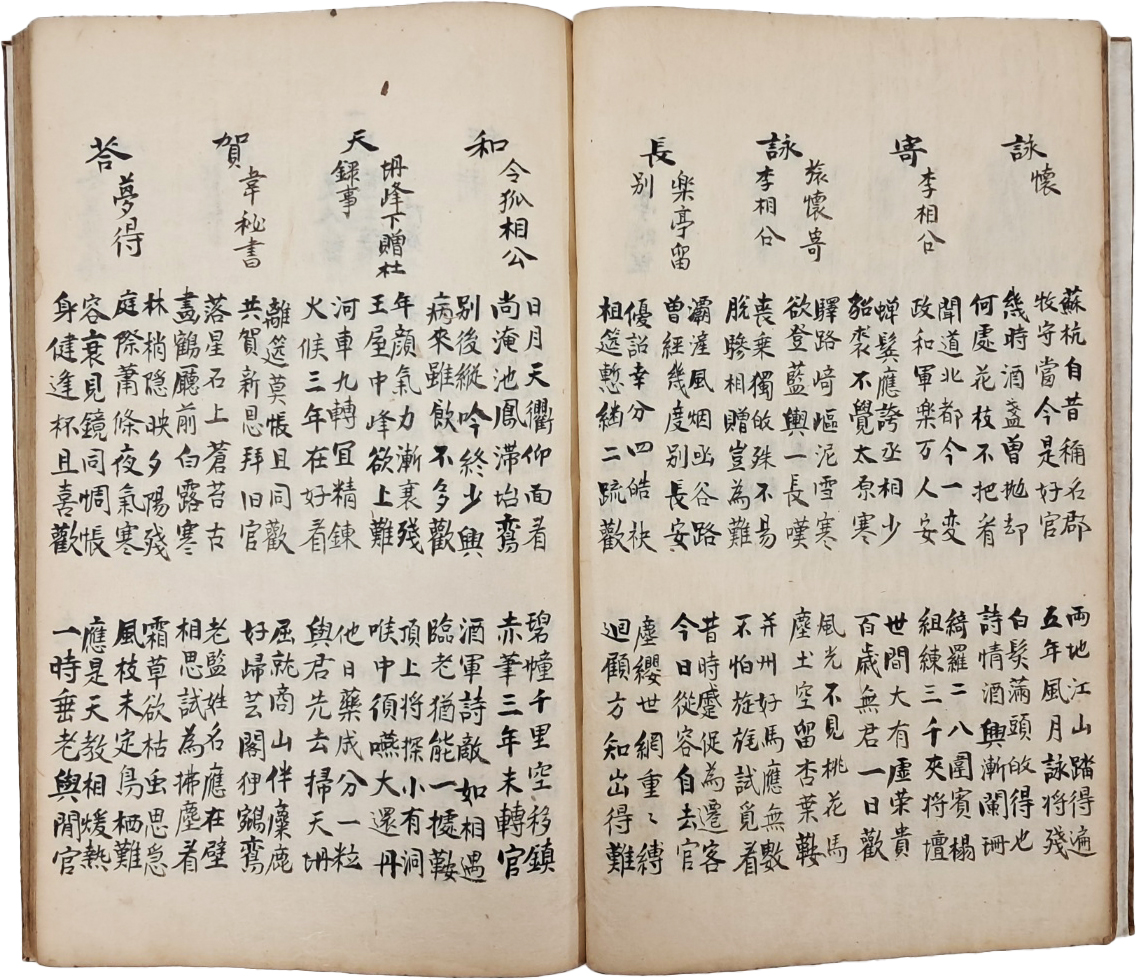 詠懷
蘇杭自昔稱名郡
牧守當今是好官
兩地江山踏得遍
五年風月詠將殘
幾時酒盞曾拋却
何處花枝不把看
白髮滿頭皈得也
詩情酒興漸闌珊
寄李相公
聞道北都今一变
政和軍楽万人安
綺羅二八圍賓榻
組練三千夾將壇
蟬鬂應誇丞相少
貂裘不覺太原寒
世間大有虚荣貴
百歲無君一日歡
詠旅懷寄
李相公
驛路崎嶇泥雪寒
欲登藍輿一長嘆
風光不見桃花馬
塵土空留杏葉鞍
喪乗獨皈殊不易
脫驂相贈豈為難
并州好馬應無數
不怕旌旄試覓看
長楽亭留
別
灞滻風烟凾谷路
曾經幾度別長安
昔時蹙促為遷客
今日從容自去官
優詔幸分四皓秩
祖筵慙継二疏歡
塵纓世網重〻縛
迴顧方知出得難
和令狐相公
日月天衢仰面看
尚淹池鳳滯抬鸞
碧幢千里空移鎮
赤筆三年未轉官
別後縱吟終少興
病來雖飲不多歡
酒軍詩敵如相遇
臨老猶能一據鞍
天坍峰下贈杜
録事
年顏氣力漸衰殘
王屋中峰欲上難
頂上將探小有洞
喉中須嚥大還丹
河車九轉宜精鍊
火候三年在好看
他日藥成分一粒
與君先去掃天坍
賀韋秘書
離筵莫悵且同歡
共賀新恩拜旧官
屈就商山伴麋鹿
好歸芸閣狎鵷鸞
落星石上蒼苔古
畫鶴廳前白露寒
老監姓名應在壁
相思試為拂塵看
荅夢得
林梢隱映夕陽殘
庭際蕭條夜氣寒
霜草欲枯虫思急
風枝未定鳥栖難
容衰見鏡同惆悵
身健逢杯且喜歡
應是天教相煖熱
一時垂老與閒官